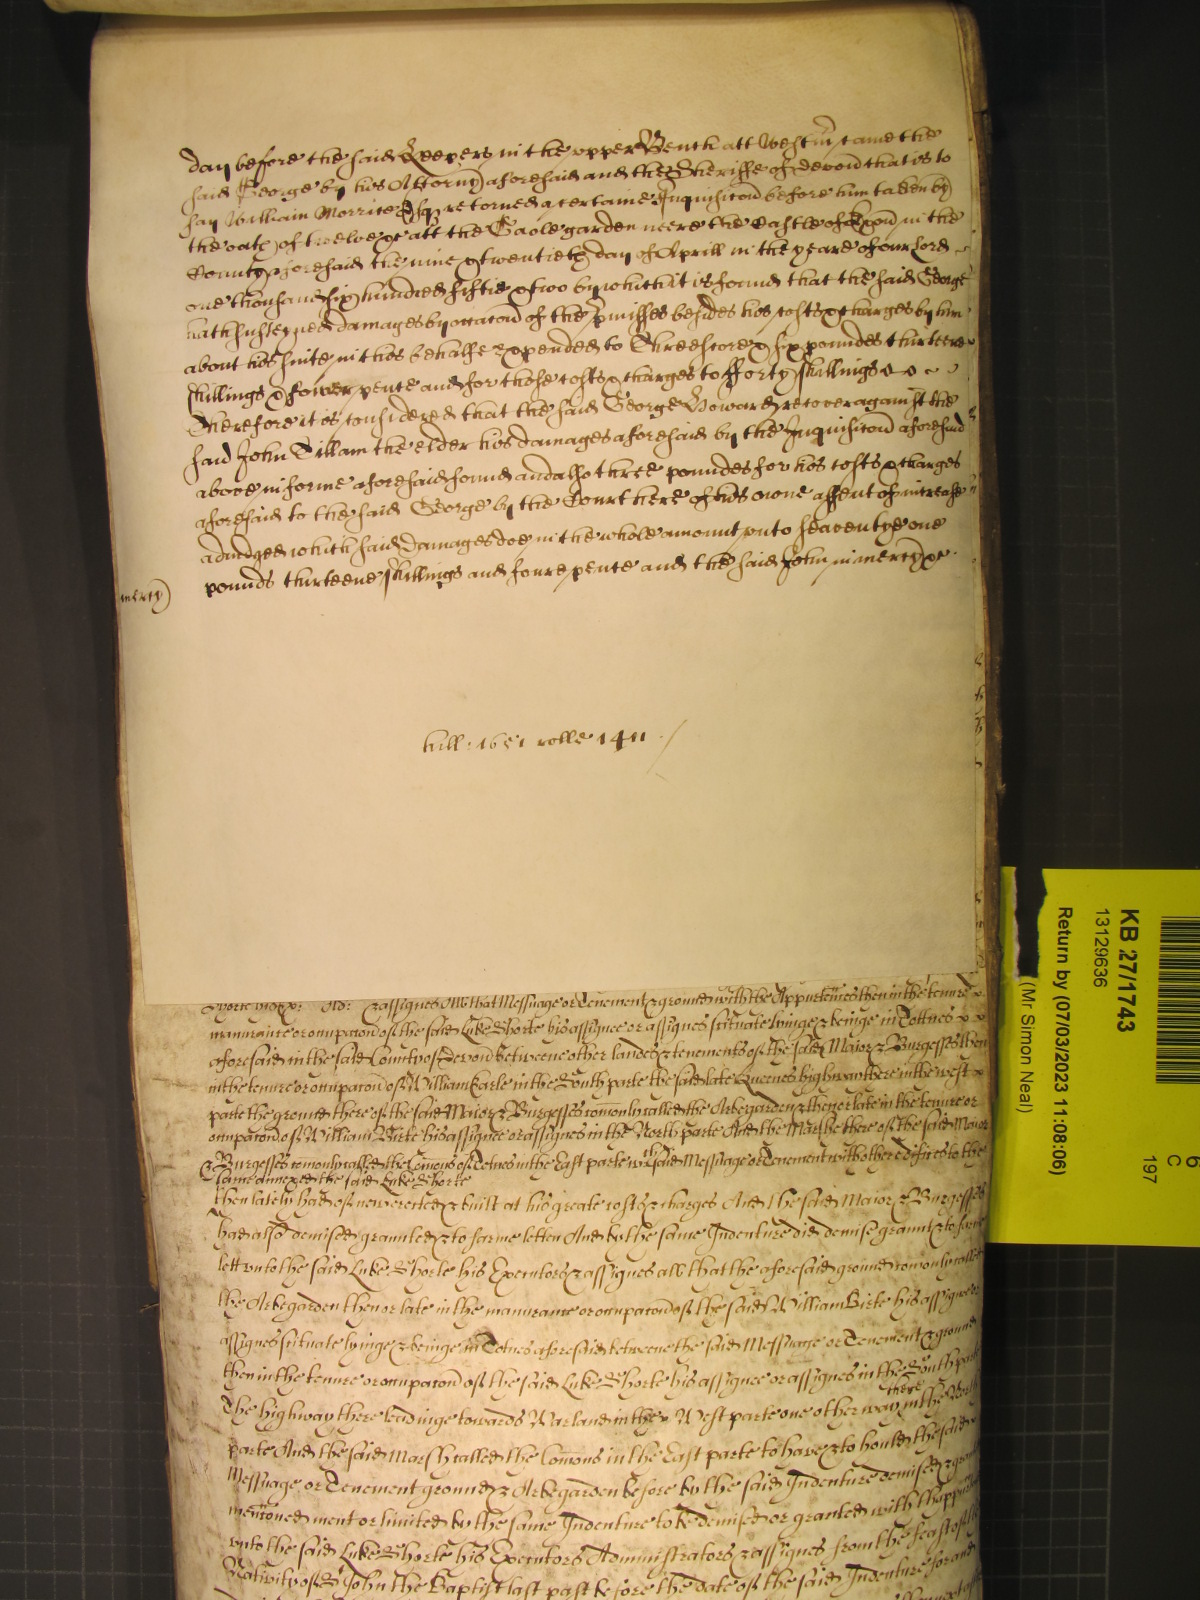 day before the said Keepers in the upper Bench att Westm̃ came the
said George by his Attorny aforesaid and the Sheriffe of Devon that is to
say William Morrice Esqr retorned a certaine Inquisicon before him taken by
the oath of twelve &c att the Gaole garden neere the Castle of Exon in the
County aforesaid the nine & twentieth day of Aprill in the yeare of our Lord
one thousand six hundred fiftie & two by which it is found that the said George
hath susteyned damages by occacon of the p̃misses besides his costs & charges by him
about his suite in his behalfe expended to Threescore & six poundes thirteene
shillings & fower pence and for those costs & charges to fforty shillings
Therefore it is considered that the said George Howard recover against the
said John Tillam the elder his damages aforesaid by the Inquisicon aforesaid
above in forme aforesaid found and also three poundes for his costs & charges
aforesaid to the said George by the Court here of his owne assent of increase
adiudged which said damages doe in the whole amount vnto seaventye one
pounds thirteene shillings and foure pence and the said John in mercy &c
mercy
hill: 1651 rolle 1411
assignes All that Messuage or Tenement & ground with the Appurtences then in the tenure
manurance or occupacon of the said Luke Shorte his assignee or assignes situate lyinge & beinge in Tottnes
aforesaid in the said County of Devon betweene other landes & tenements of the said Maior & Burgesses then
in the tenure or occupacon of William Earle in the South parte the said late Queenes highway there in the west
parte the ground there of the said Maior & Burgesses comonly called the Arbegarden then or late in the tenure or
occupacon of William Birke his assignee or assignes in the North parte And the Marshe there of the said Maior
& Burgesses comonly called the Comons of Totnes in the East parte wch said Messuage or Tenement with other edifices to the
same annexed the said Luke Shorte
then lately had of new erected & built at his greate costs & charges And the said Maior & Burgesses
had also demised graunted & to farme letten And by the same Indenture did demise graunt & to farme
lett vnto the said Luke Shorte his Executors & assignes all that the aforesaid ground comonly called
the Arbegarden then or late in the manurance or occupacon of the said William Birke his assignee or
assignes situate lyinge & beinge in Totnes aforesaid betweene the said Messuage or Tenement & ground
then in the tenure or occupacon of the said Luke Shorte his assignee or assignes in the South parte
The highway there leadinge towards Warland in the West parte one other way there in the North
parte And the said Marsh called the Comons in the East parte to have & to hould the said
Messuage or Tenement ground & Arbegarden before by the said Indenture demised &
mencioned ment or limited by the same Indenture to be demised or granted with
vnto the said Luke Shorte his Executors Administrators & assignes from the feast of the
Nativity of St John the Baptist last past before the date of the said Indenture for and
KB 27/1743
13129636
Return by (07/03/2023 11:08:06)
(Mr Simon Neal)
6
C
197